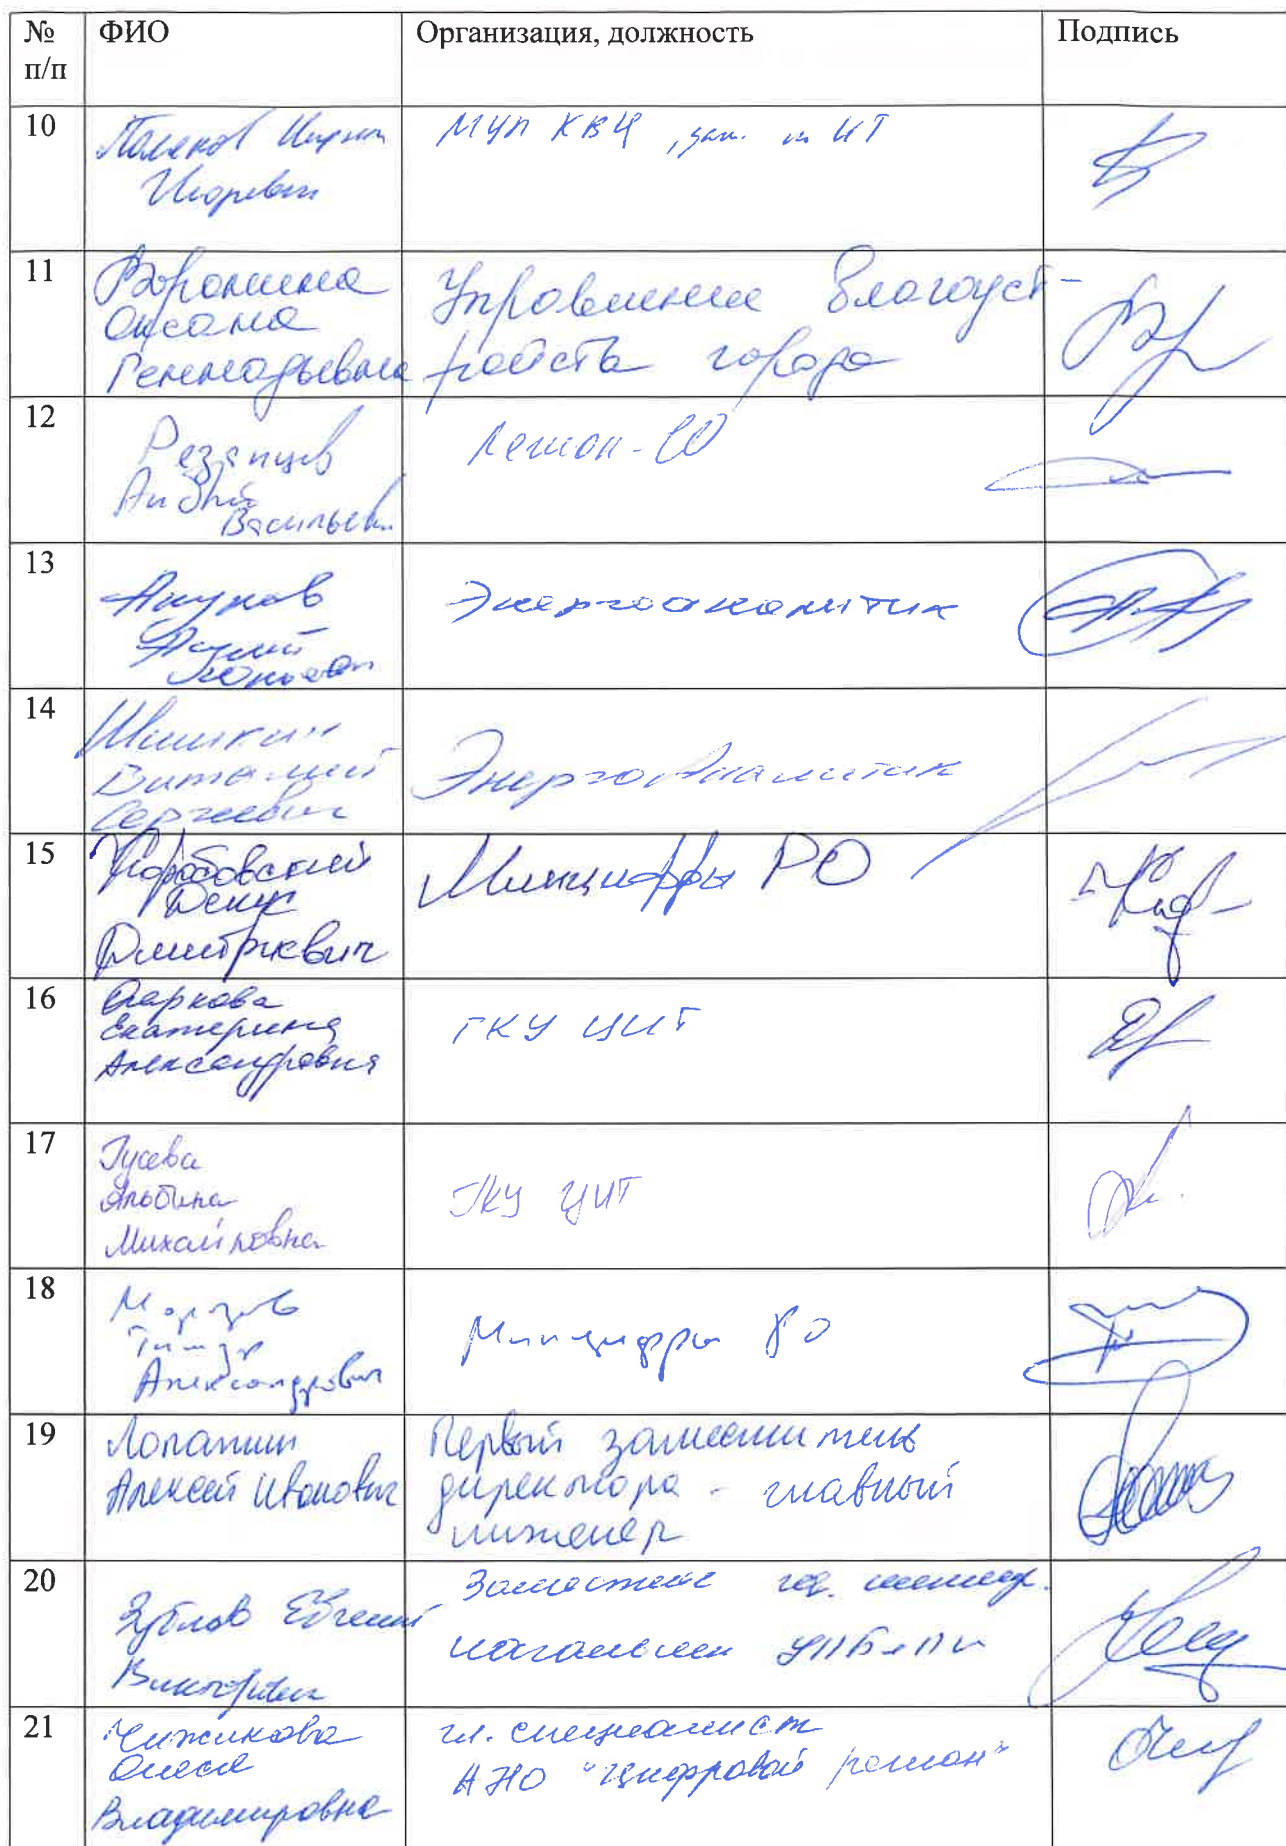 № п/п ФИО Организация, должность Подпись
10
Поляков Кирилл
Игоревич
МУП КВЦ , зам. по ИТ
11
Воронина
Оксана
Геннадьевна
Управление благоуст-
ройства города
12
Резанцев
Андрей
Васильевич
Легион-
13
Акупов
Юрьевич
Энергоаналитик
14
Шишкин
Виталий
Сергеевич
ЭнергоАналитик
15
Коробовский
Денис
Дмитриевич
Минцифры РО
16
Екатерина
Александровна
ГКУ ЦИТ
17
Гусева
Альбина
Михайловна
ГКУ ЦИТ
18
Морозов
Тимур
Александрович
Минцифры РО
19
Лопатин
Алексей Иванович
Первый заместитель
директора - главный
инженер
20
Зублов Евгений
Викторович
Заместитель
начальник
21
Чижикова
Олеся
Владимировна
гл. специалист
АНО "Цифровой регион"